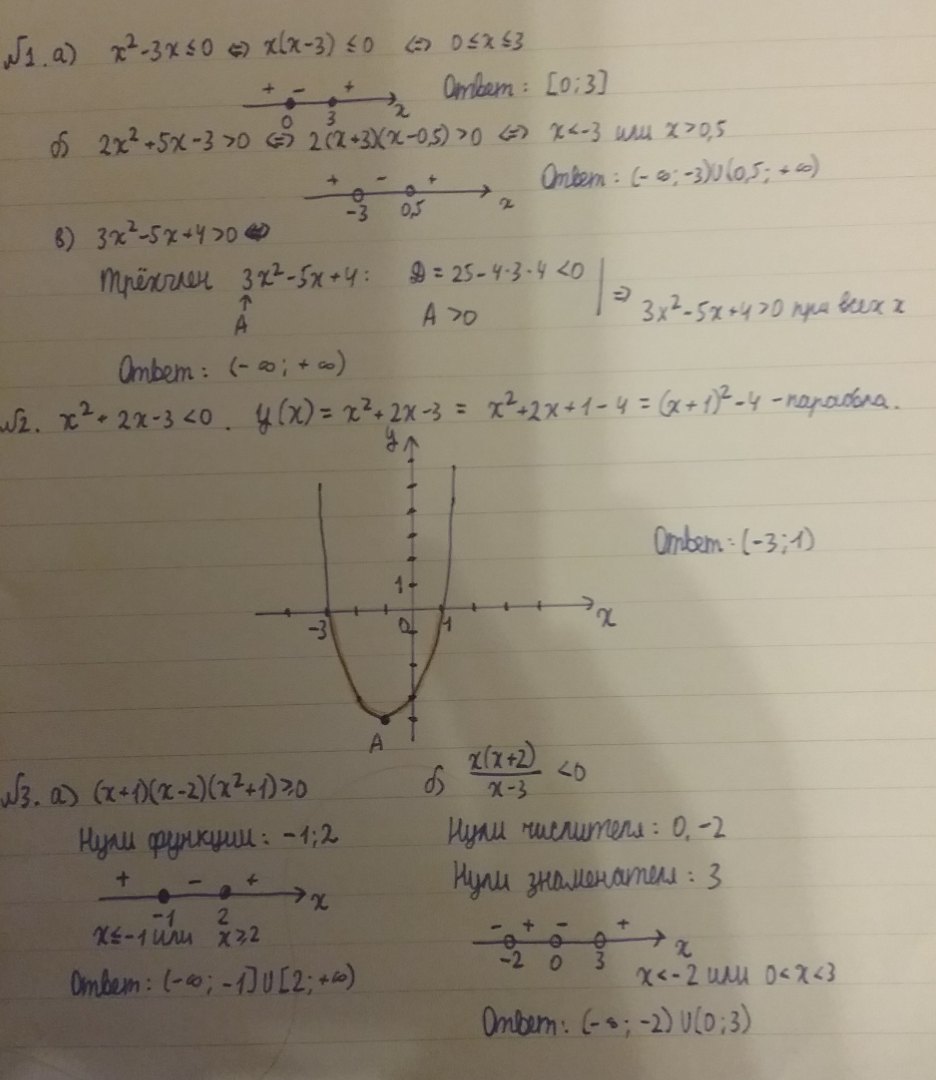 №1. а) x²-3x≤0 ⇔ x(x-3)≤0 ⇔ 0≤x≤3
+ - + Ответ: [0;3]
0 3 x
б) 2x²+5x-3>0 ⇔ 2(x+3)(x-0,5)>0 ⇔ x<-3 или x>0,5
+ - + Ответ: (-∞;-3)∪(0,5;+∞)
-3 0,5 x
в) 3x²-5x+4>0 ⇔
Трёхчлен 3x²-5x+4: D = 25-4·3·4<0
↑ ⇒ 3x²-5x+4>0 при всех x
A A>0
Ответ: (-∞;+∞)
№2. x²+2x-3<0. y(x) = x²+2x-3 = x²+2x+1-4 = (x+1)²-4 - парабола.
y
Ответ: (-3;1)
1
-3 0 1 x
A
№3. а) (x+1)(x-2)(x²+1)≥0
Нули функции: -1;2
+ - +
-1 2 x
x≤-1 или x≥2
Ответ: (-∞;-1]∪[2;+∞)
б) x(x+2)/(x-3) <0
Нули числителя: 0,-2
Нули знаменателя: 3
- + - +
-2 0 3 x
x<-2 или 0<x<3
Ответ: (-∞;-2)∪(0;3)